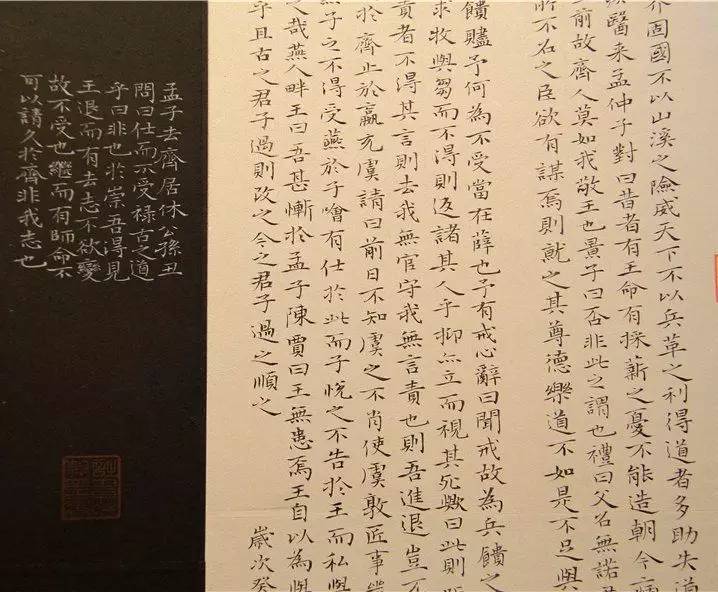 固國不以山溪之險威天下不以兵革之利得道者多助失道
醫来孟仲子對曰昔者有王命有採薪之憂不能造朝今
前故齊人莫如我敬王也景子曰否非此之謂也禮曰父名無諾
所不名之臣欲有謀焉則就之其尊德樂道不如是不足與
饋贐予何為不受當在薛也予有戒心辭曰聞戒故為兵饋之
求牧與芻而不得則返諸其人乎抑亦立而視其死歟曰此則
責者不得其言則去我無官守我無言責也則吾進退豈不
於齊止於嬴充虞請曰前日不知虞之不肖使虞敦匠事
燕子之不得受燕於子噲有仕於此而子悅之不告於王而私與
之哉燕人畔王曰吾甚慚於孟子陳賈曰王無患焉王自以為與
乎且古之君子過則改之今之君子過之順之
歲次癸
孟子去齊居休公孫丑
問曰仕而不受祿古之道
乎曰非也於崇吾得見
王退而有去志不欲變
故不受也繼而有師命不
可以請久於齊非我志也